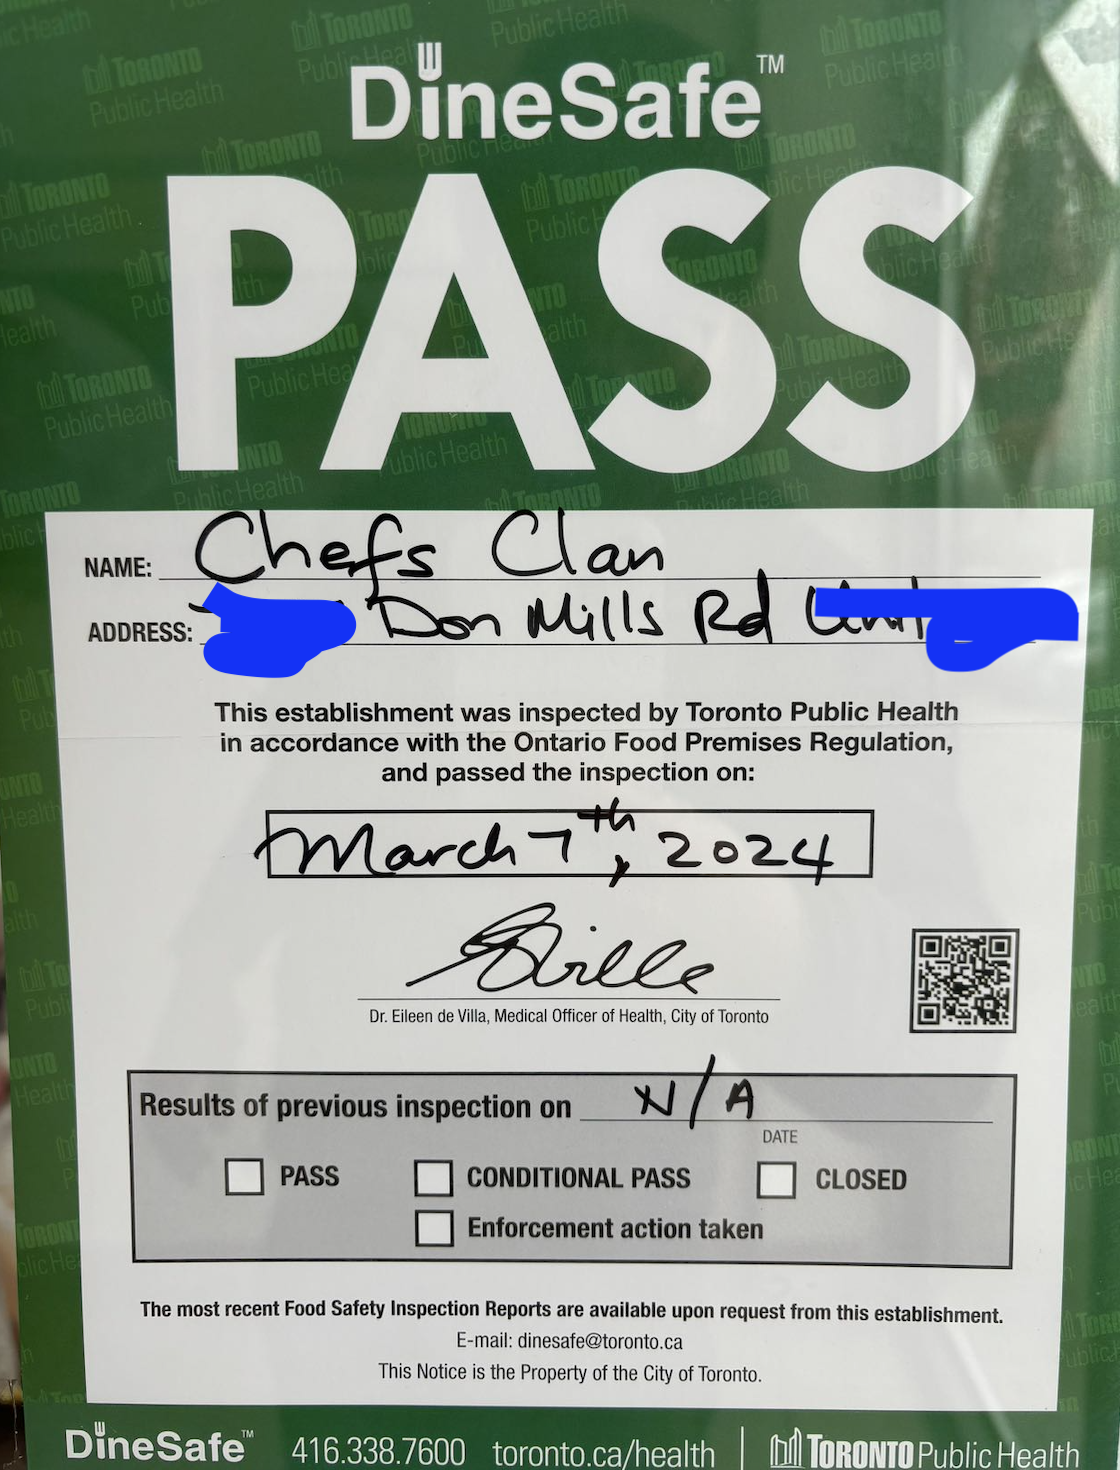 DineSafe™
PASS
NAME: Chefs Clan
ADDRESS: Don Mills Rd Unit
This establishment was inspected by Toronto Public Health
in accordance with the Ontario Food Premises Regulation,
and passed the inspection on:
March 7th, 2024
Dr. Eileen de Villa, Medical Officer of Health, City of Toronto
Results of previous inspection on N/A
DATE
PASS CONDITIONAL PASS CLOSED
Enforcement action taken
The most recent Food Safety Inspection Reports are available upon request from this establishment.
E-mail: dinesafe@toronto.ca
This Notice is the Property of the City of Toronto.
DineSafe™ 416.338.7600 toronto.ca/health | TORONTO Public Health